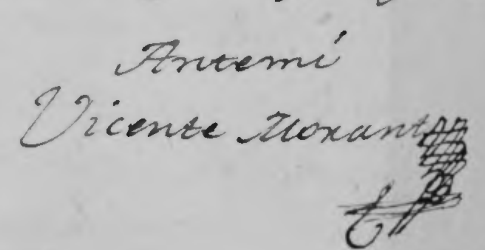 Antemi
Vicente Morant